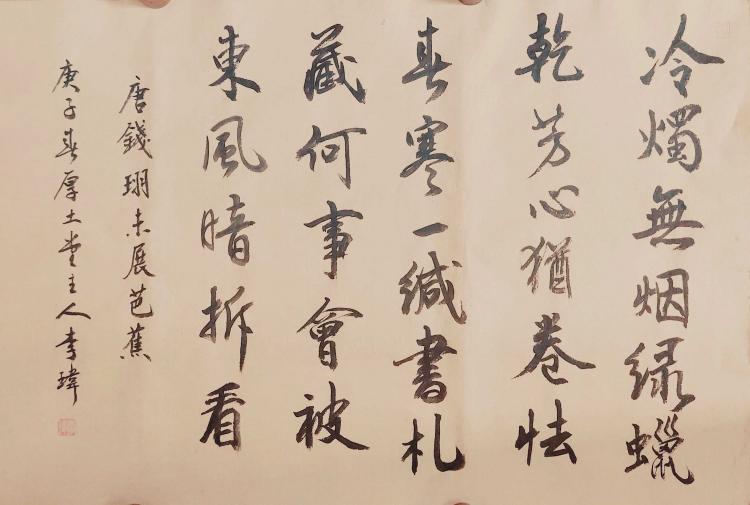 冷燭無烟緑蠟
乾芳心猶卷怯
春寒一緘書札
藏何事會被
東風暗拆看
唐錢珝未展芭蕉
庚子春厚土堂主人李瑋